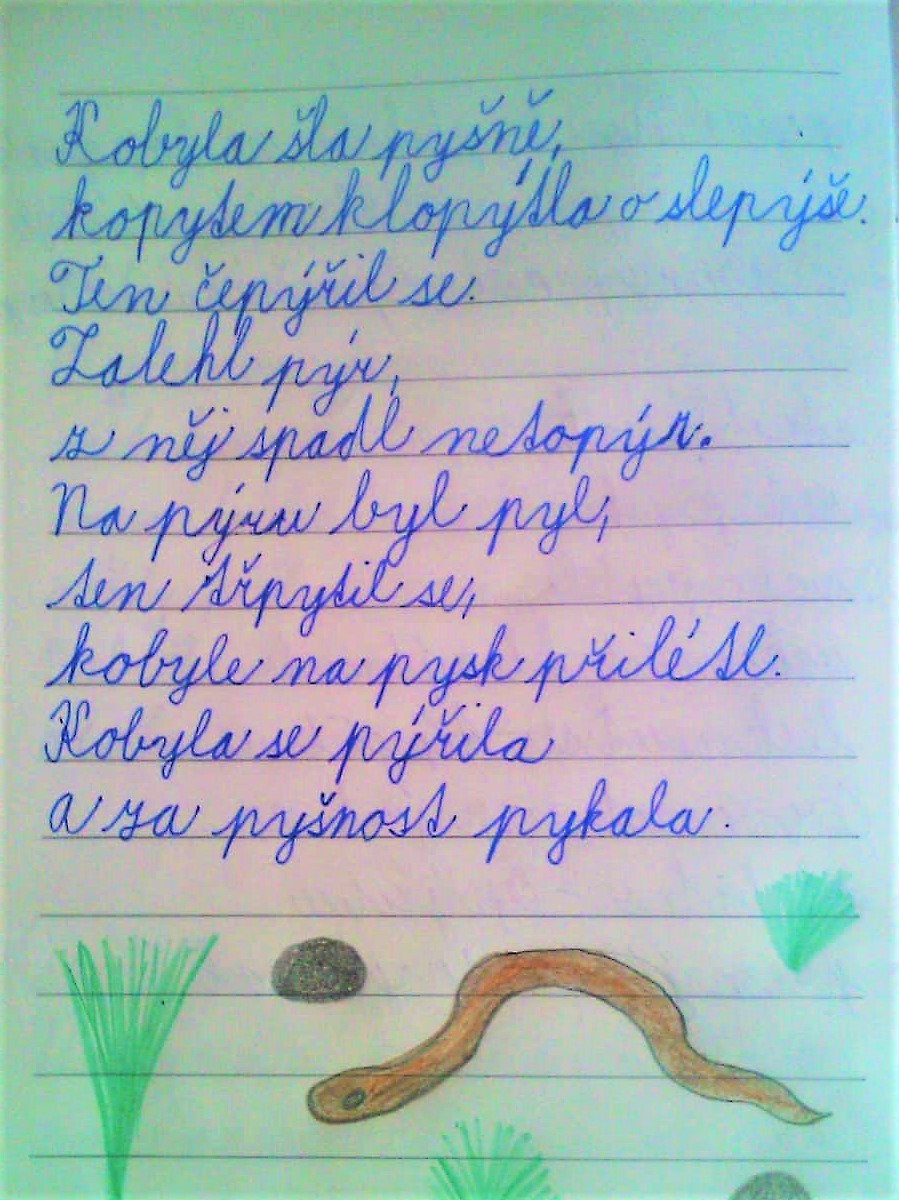 Kobyla šla pyšně,
kopytem klopýtla o slepýše.
Ten čepýřil se.
Zalehl pýr,
z něj spadl netopýr.
Na pýru byl pyl,
ten třpytil se,
kobyle na pysk přilétl.
Kobyla se pýřila
a za pyšnost pykala.